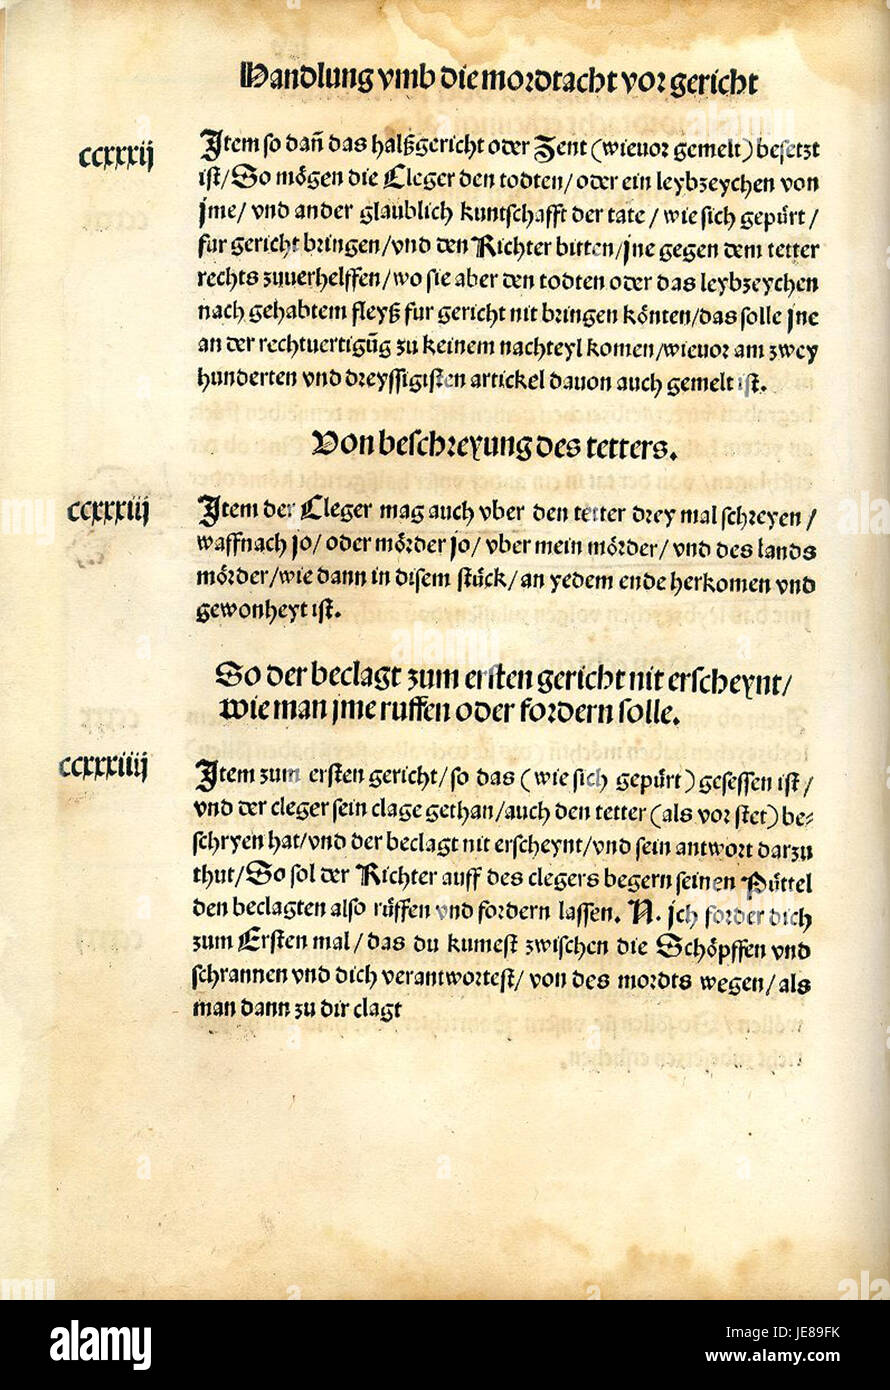 Handlung vmb die mordtacht vor gericht
ccxxxij
Jtem so dañ das halßgericht oder Zent (wieuor gemelt) besetzt
ist/ So mögen die Cleger den todten/ oder ein leybzeychen von
jme/ vnd ander glaublich kuntschafft der tate/ wie sich gepürt/
fur gericht bringen/ vnd den Richter bitten/ jne gegen dem tetter
rechts zuuerhelffen/ wo sie aber den todten oder das leybzeychen
nach gehabtem fleyß fur gericht nit bringen könten/ das solle jne
an der rechtuertigũg zu keinem nachteyl komen/ wieuor am zwey
hunderten vnd dreyssigisten artickel dauon auch gemelt ist.
Von beschreyung des tetters.
ccxxxiij
Jtem der Cleger mag auch vber den tetter drey mal schreyen/
waffnach jo/ oder mörder jo/ vber mein mörder/ vnd des lands
mörder/ wie dann in disem stück/ an yedem ende herkomen vnd
gewonheyt ist.
So der beclagt zum ersten gericht nit erscheynt/
wie man jme ruffen oder fordern solle.
ccxxxiiij
Jtem zum ersten gericht/ so das (wie sich gepürt) gesessen ist/
vnd der cleger sein clage gethan/ auch den tetter (als vor stet) be⸗
schryen hat/ vnd der beclagt nit erscheynt/ vnd sein antwort darzu
thut/ So sol der Richter auff des clegers begern seinen Püttel
den beclagten also rüffen vnd fordern lassen. N. ich forder dich
zum Ersten mal/ das du kumest zwischen die Schöpffen vnd
schrannen vnd dich verantwortest/ von des mordts wegen/ als
man dann zu dir clagt
alamy
Image ID: JE89FK
www.alamy.com